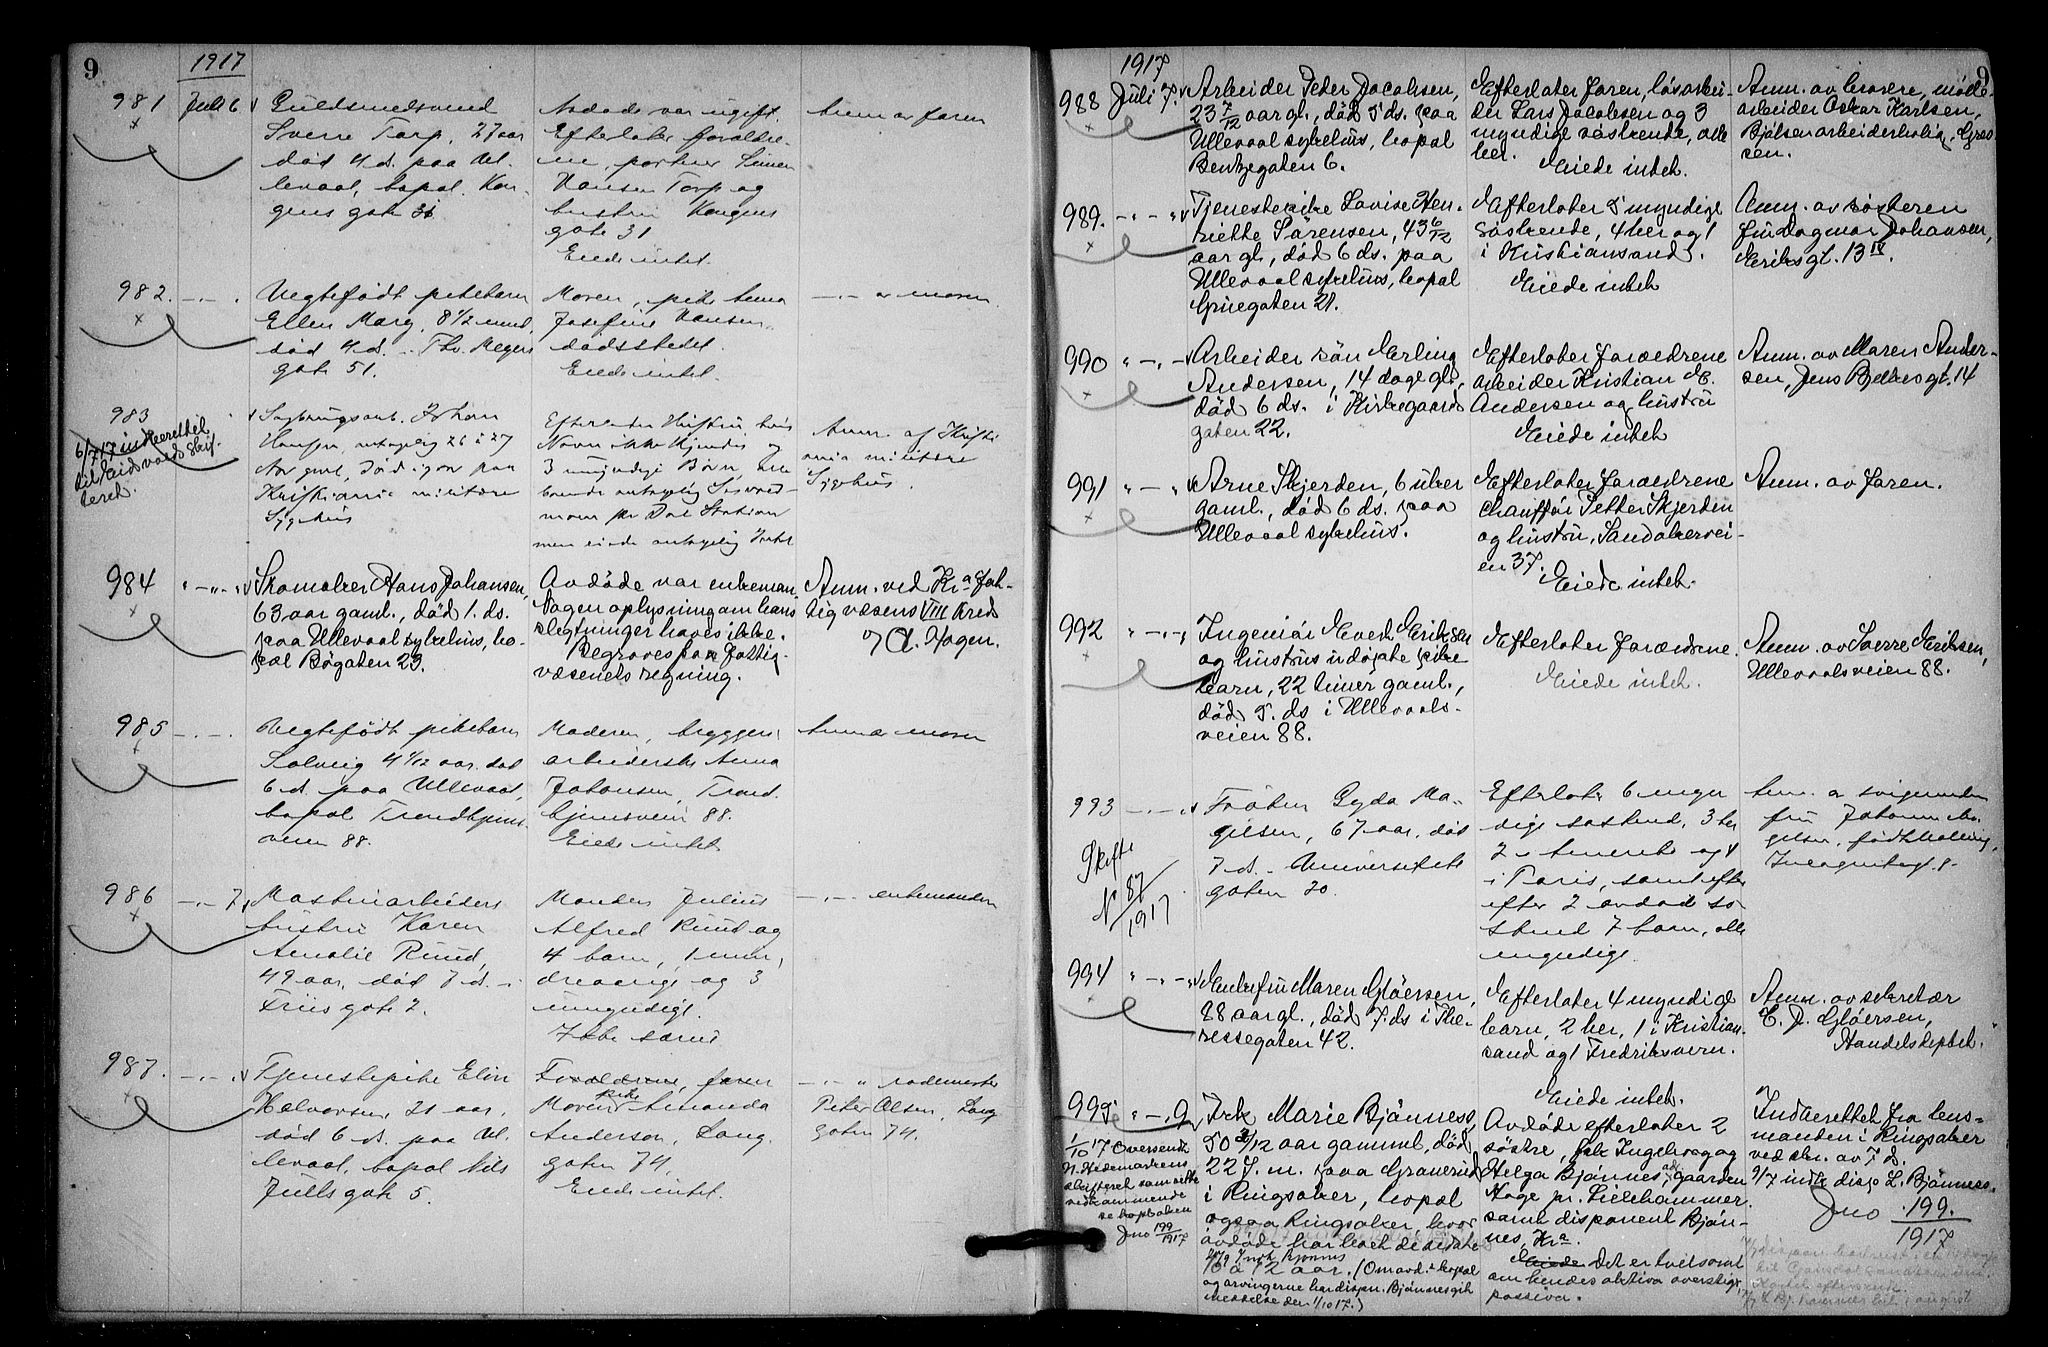 9
1917
981
Juli 6
Guldsmedsvend
Sverre Torp, 27 aar
død 4 ds. paa Ul-
levaal, bopæl Kon-
gens gate 31
Avdøde var ugift.
Efterlater forældre-
ne, portner Simen
Hansen Torp og
hustru Kongens
gate 31
Eiede intet.
Anm av faren
982.
Uegtefødt pikebarn
Ellen Marg. 8 1/2 mnd.
død 4 d. i Thv. Meyers
gate 51.
Moren, pike Anna
Josefine Hansen
dødsstedet.
Eiede intet.
—"— av moren.
983
6/7 17 indberettet
til Eidsvold Skif-
teret.
Sagbrugsarb. Johan
Hansen, antagelig 26 à 27
Aar gml, død igaar paa
Kristiania militære
Sygehus
Efterlader Hustru, hvis
Navn ikke kjendes og
3 umyndige Børn,
boende antagelig
pr Dal Station
men eiede antagelig Intet
Anm. af Kristi-
ania militære
Sygehus.
984
Skomaker Hans Johansen,
63 aar gaml., død 1. ds.
paa Ullevaal sykehus, bo-
pæl Bøgaten 23.
Avdøde var enkemann
Nogen oplysning om hans
slegtninger haves ikke.
Begraves paa fattig-
væsenets regning.
Anm. ved Kr.a Fat-
tigvæsens VIII Kred
v/ A. Hagen.
985
Uegtefødt pikebarn
Solveig 4 1/12 aar død
6 d. paa Ullevaal,
bopæl Trondhjems-
veien 88.
Moderen, bryggeri
arbeiderske Anna
Johansen, Trond-
hjemsveien 88.
Eiede intet
Anm av moren
986
—"— 7.
Maskinarbeiders
hustru Karen
Amalie Ruud,
49 aar, død 7 d. i
Friis gate 7.
Manden Julius
Alfred Ruud og
4 barn, 1 myn-
dig og 3
umyndige.
—"— enkemanden
987.
Tjenestepike Elin
Halvorsen 21 aar,
død 6 d. paa Ul-
levaal, bopæl Nils
Juels gate 5.
Forældrene, faren
Moren pike Amanda
Anderson, Lang-
gaten 74,
Eiede intet.
—"— " rodemester
Peter Olsen, Lang-
gaten 74.
1917
9
988
Juli 7.
Arbeider Peder Jacobsen,
23 7/12 aar gl., død 5 ds. paa
Ullevaal sykehus, bopæl
Bentzegaten 6.
Efterlater faren, løsarbei-
der Lars Jacobsen og 3
myndige søskende, alle
her.
Eiede intet.
Anm. av svogeren, mølle-
arbeider Oskar Karlsen,
Bjølsen arbeiderbolig.
989.
Tjenestepike Lovise Hen-
riette Sørensen, 43 6/12
aar gl., død 6 ds. paa
Ullevaal sykehus, bopæl
Grinegaten 21.
Efterlater 5 myndige
søskende, 4 her og 1
i Kristiansand.
Eiede intet
Anm. av søsteren
fru Dagmar Johansen,
Eriks gt. 13 IV.
990
Arbeider søn Erling
Andersen, 14 dage gl.,
død 6 ds. i Kirkegaards
gaten 22.
Efterlater forældrene
arbeider Kristian E.
Andersen og hustru
Eiede intet
Anm. av Maren Ander-
sen, Jens Bjelkes gt. 14
991
Arne Skjerden, 6 uker
gaml., død 6 ds. paa
Ullevaal sykehus.
Efterlater forældrene
chauffør Petter Skjerden
og hustru, Sandakervei-
en 37.
Eiede intet.
Anm. av faren.
992
Ingeniør Evert Eriksen
og hustrus udøpte pike
barn, 22 timer gaml.,
død 5. ds i Ullevaals-
veien 88.
Efterlater forældrene.
Eiede intet.
Anm. av Sverre Eriksen,
Ullevaalsveien 88.
993
Skifte
N 87/1917
Frøken Gyda Ma-
gelsen, 67 aar, død
7 d. i Universitets
gaten 20.
Efterlater 6 myn-
dige søskend, 3 her
2 i Amerika og 1
i Paris, samt efter
efter 2 avdød sø-
skend 7 barn, alle
myndige.
Anm. av svigerinden
fru Johanne Ma-
gelsen, født Kolling,
Incognitogt. 8.
994
Enkefru Maren Gløersen,
88 aar gl., død 7. ds i The-
ressegaten 42.
Efterlater 4 myndige
barn, 2 her, 1 i Kristian-
sand og 1 Fredriksværn.
Eiede intet.
Anm. av sekretær
E. A. Gløersen,
Handelsdeptet.
995
" — 9
1/10 17 Oversendt
N. Hedemarkens
skifteret som rette
vedkommende
se kopiboken
Jno 199/1917
Frk Marie Bjønness,
50 3/12 aar gammel, død
22 f. m. paa Graverud
i Ringsaker, bopæl
ogsaa Ringsaker, hvor
avdøde har boet de sidste
10 à 12 aar. (Om avd.s bopæl
og arvingerne har dispon. Bjønnes git
meddelse den 1/10 17.)
Avdøde efterlater 2
søstre, frk Ingeborg og
Helga Bjønnes, adr. gaarden
Hage pr. Lillehammer
samt disponent Bjøn-
nes, Kr.a
Eiede Det er tvilsomt
om hendes aktiva overstiger
passiva.
Indberettet fra lens-
manden i Ringsaker
ved skr. av 7 ds.
9/7 indk disp. L. Bjønness.
Jno 199/1917